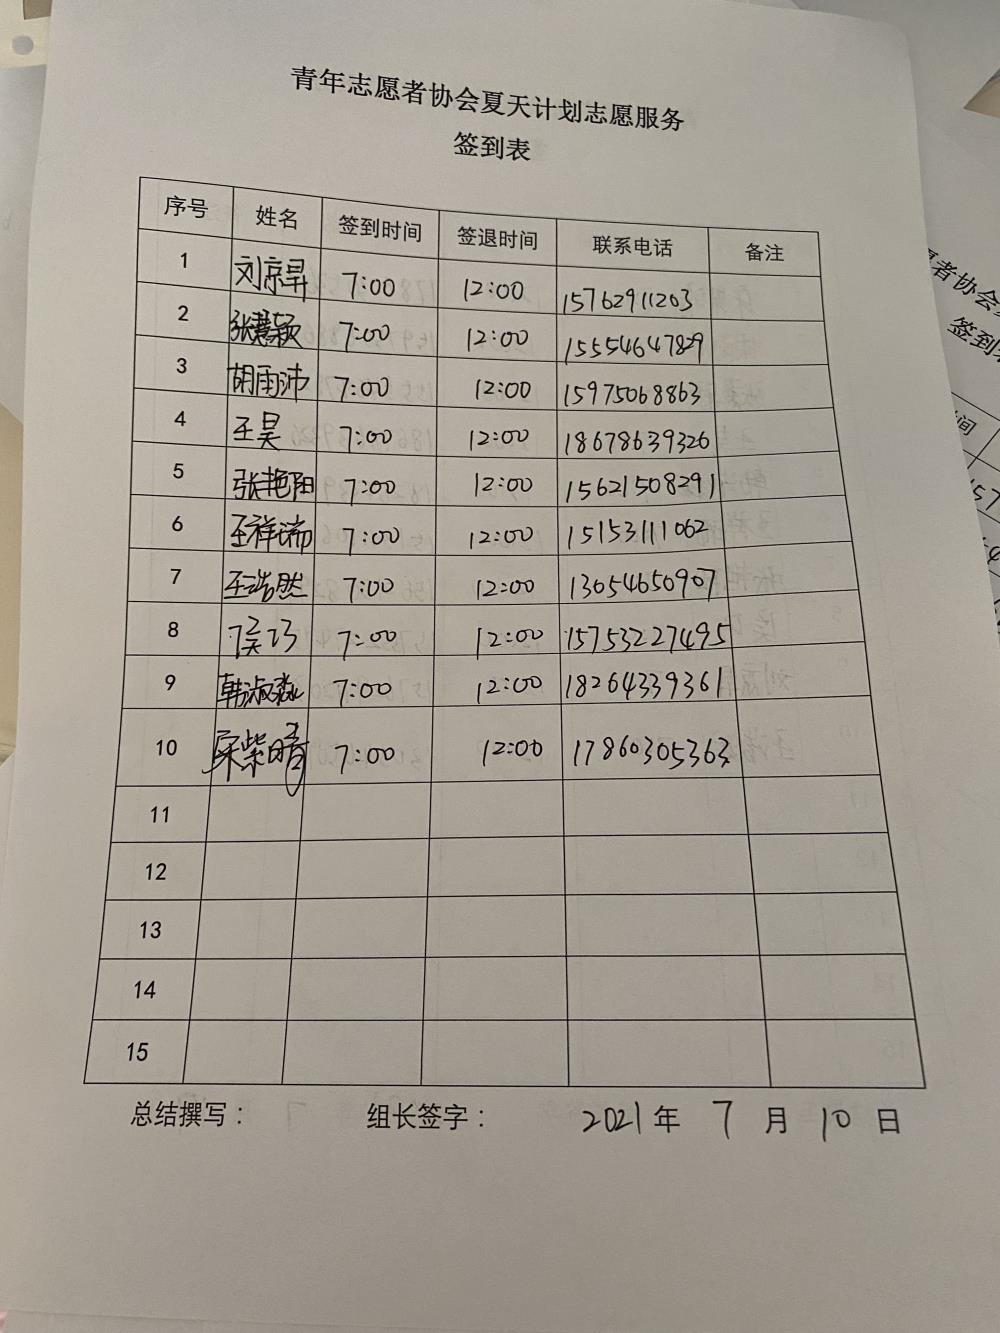 青年志愿者协会夏天计划志愿服务
签到表
序号 姓名 签到时间 签退时间 联系电话 备注
1 刘京昇 7:00 12:00 15762911203
2 张慧颖 7:00 12:00 15554647829
3 胡雨沛 7:00 12:00 15975068863
4 王昊 7:00 12:00 18678639326
5 张艳阳 7:00 12:00 15621508291
6 王祥瑞 7:00 12:00 15153111062
7 王浩然 7:00 12:00 13054650907
8 侯巧 7:00 12:00 15753227495
9 韩淑淼 7:00 12:00 18264339361
10 紫晴 7:00 12:00 17860305363
11
12
13
14
15
总结撰写： 组长签字： 2021年 7 月 10 日
者协会
签到
间
157